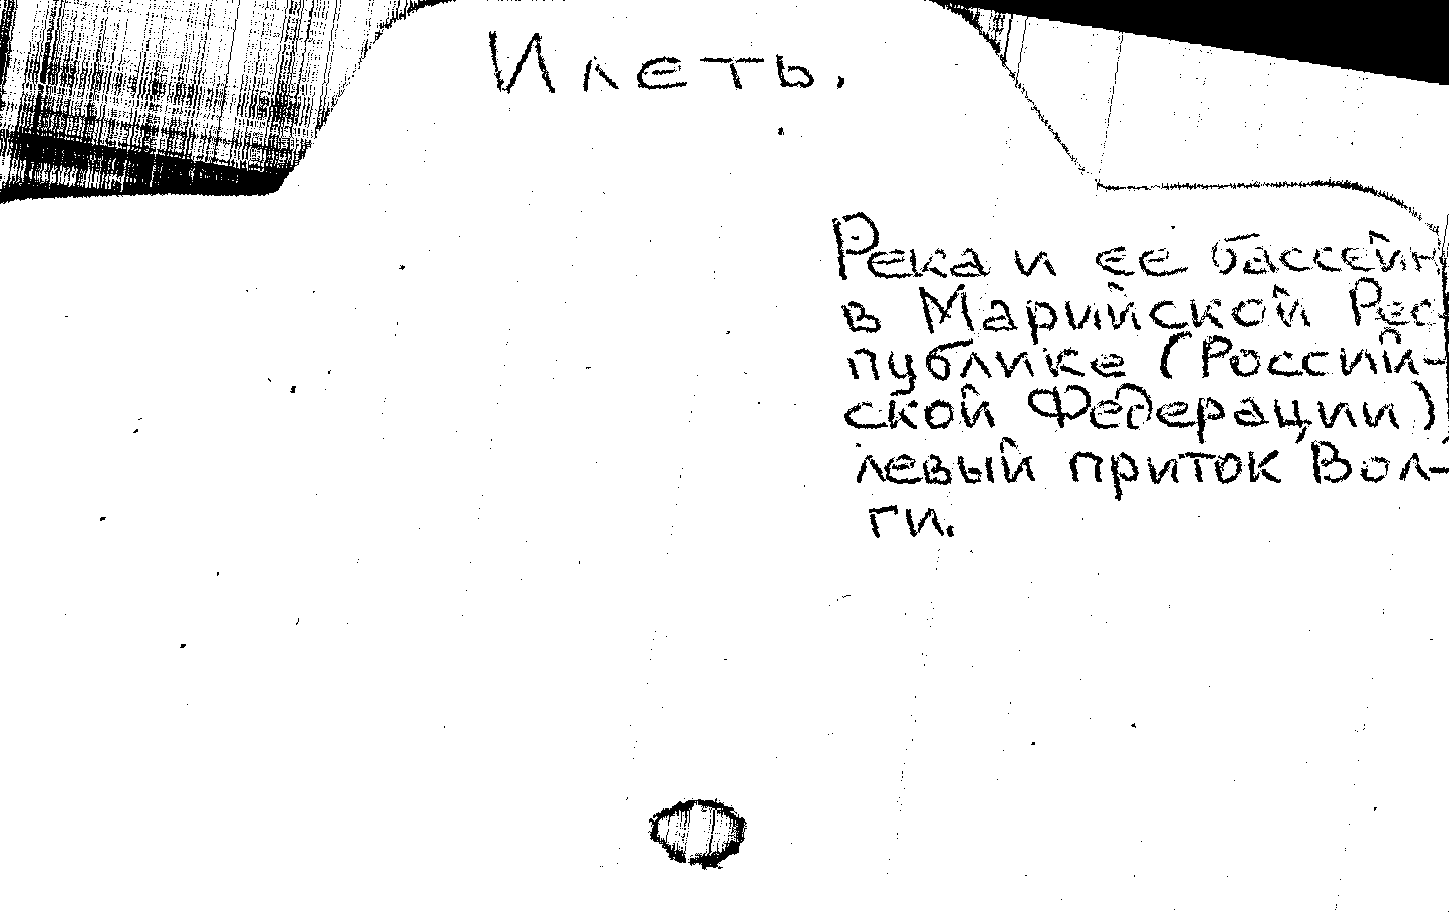 Илеть.
Река и ее бассейн
в Марийской Рес-
публике (Россий-
ской Федерации),
левый приток Вол-
ги.